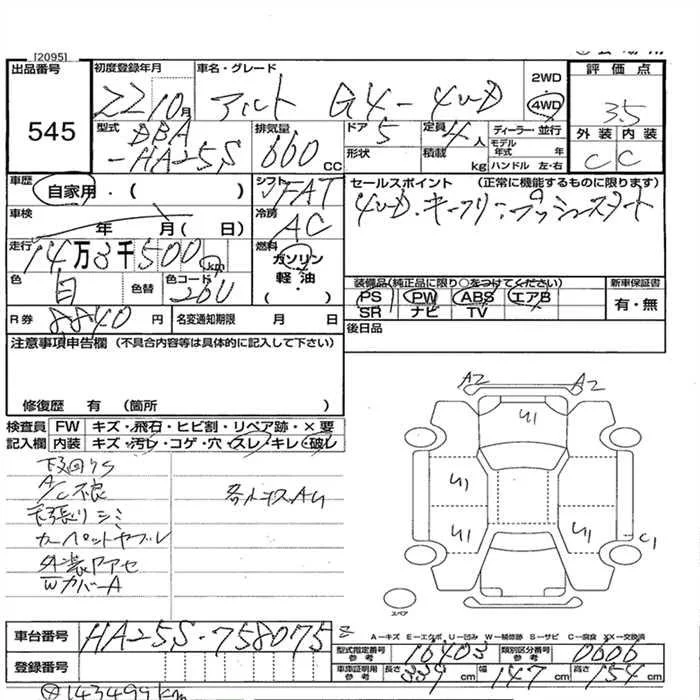 [2095]
出品番号 初度登録年月 車名・グレード 2WD 評価点
545 22 10月 アルト G4-4WD 4WD 3.5
型式 DBA-HA25S 排気量 660 CC ドア 5 定員 4人 ディーラー・並行
外装 内装
形状 積載 kg モデル年式 年
ハンドル 左・右 C C
車歴 自家用・( ) シフト FAT セールスポイント (正常に機能するものに限ります)
車検 年 月( 日) 冷房 AC 4WD・キーフリー・プッシュスタート
走行 14万3千500km 燃料 ガソリン 軽油 ・( )
色 白 色替 色コード 26U 装備品(純正品に限り○をつけてください) 新車保証書
PS PW ABS エアB 有・無
SR ナビ TV
R券 8840円 名変通知期限 月 日 後日品
注意事項申告欄 (不具合内容等は具体的に記入して下さい)
修復歴 有 (箇所 )
検査員記入欄 FW キズ・飛石・ヒビ割・リペア跡・×要
内装 キズ・汚レ・コゲ・穴・スレ・キレ・破レ
下回りS
A/C不良
天張りシミ
カーペットヤブレ
外装アセ
Wカバー A
A2 A2
U1
U1
U1 U1
C1
スペア
A−キズ E−エクボ U−凹み W−補修跡 S−サビ C−腐食 XX−交換済
車台番号 HA25S-758075
型式指定番号 参考 16403 類別区分番号 参考 0606
登録番号 車庫証明用 参考 長さ 339cm 幅 147cm 高さ 154cm
143499km